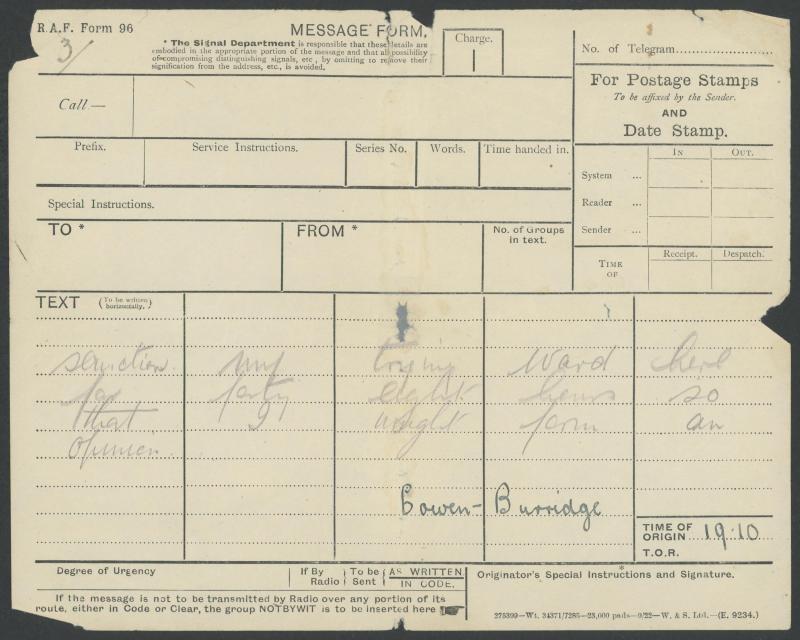 R.A.F. Form 96
3/
MESSAGE FORM.
* The Signal Department is responsible that these details are
embodied in the appropriate portion of the message and that all possibility
of compromising distinguishing signals, etc., by omitting to remove their
signification from the address, etc., is avoided.
Charge.
No. of Telegram
For Postage Stamps
To be affixed by the Sender.
AND
Date Stamp.
Call—
Prefix.
Service Instructions.
Series No.
Words.
Time handed in.
In
Out.
System ...
Reader ...
Sender ...
Special Instructions.
TO *
FROM *
No. of Groups
in text.
TIME
OF
Receipt.
Despatch.
TEXT (To be written
horizontally.)
sanction my trying Ward here
for forty eight hours so
that I might form an
opinion.
Cowen-Burridge
TIME OF
ORIGIN 19.10
T.O.R.
Degree of Urgency
If By
Radio
To be
Sent
AS WRITTEN
IN CODE.
Originator's Special Instructions and Signature.
If the message is not to be transmitted by Radio over any portion of its
route, either in Code or Clear, the group NOTBYWIT is to be inserted here
275399—Wt. 34371/7285—23,000 pads—9/22—W. & S. Ltd.—(E. 9234.)